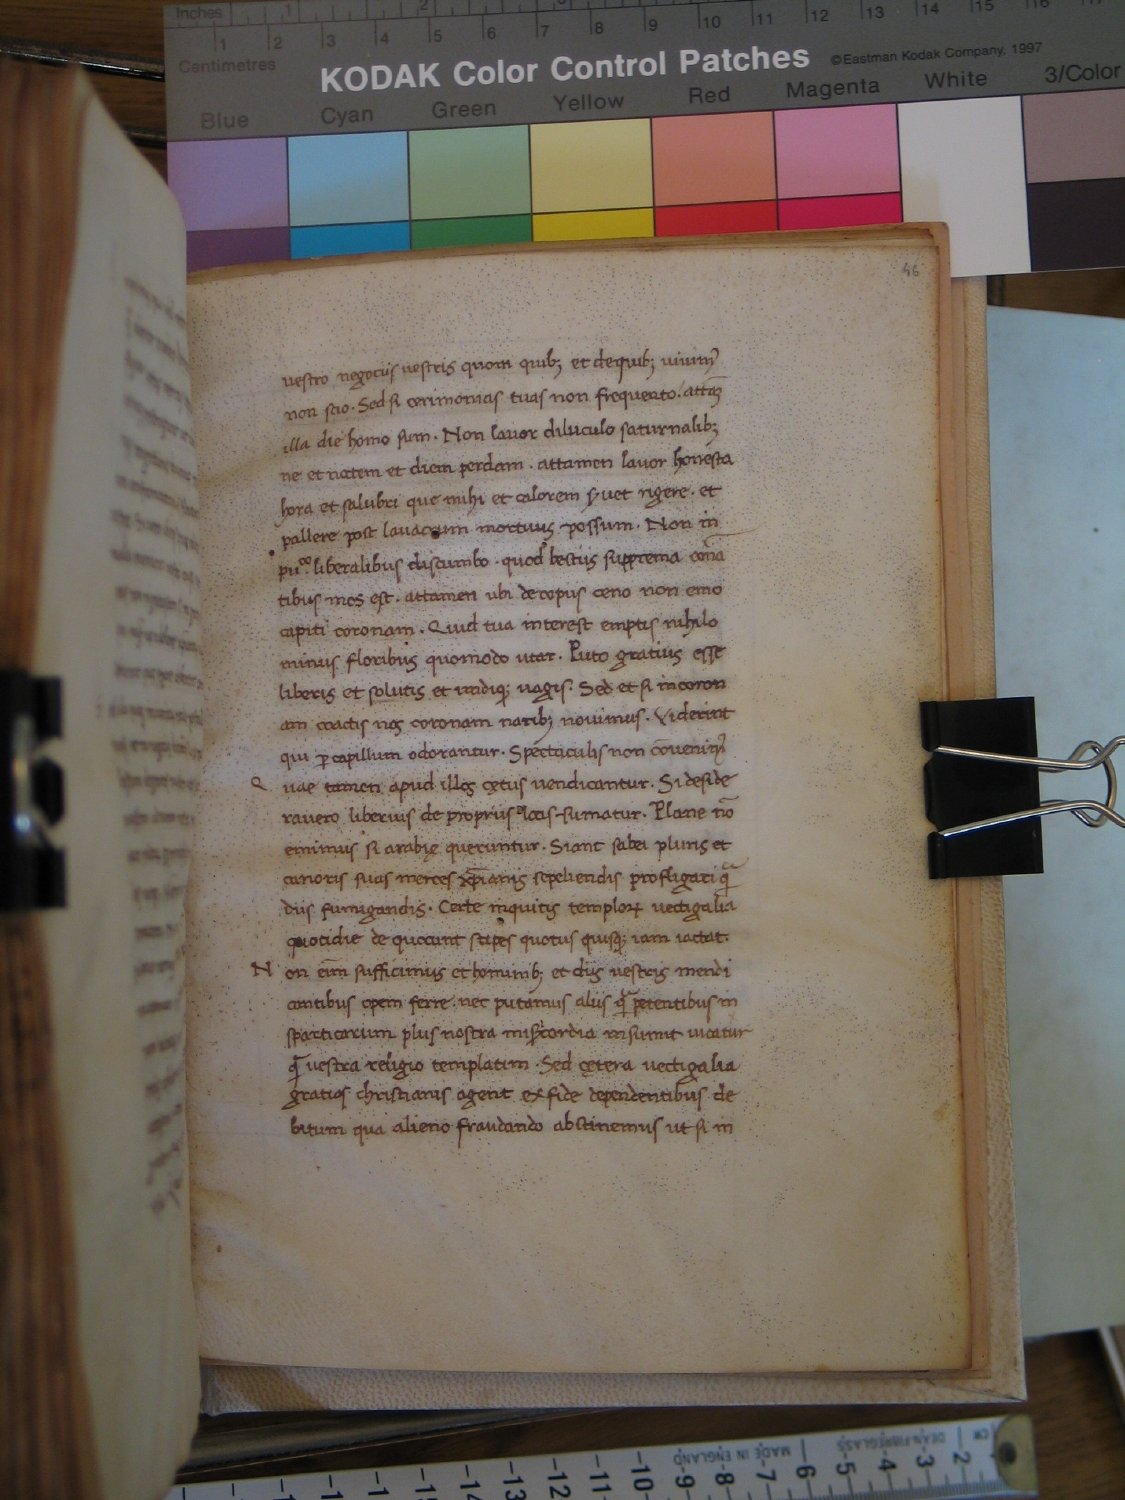 Inches 1 2 3
1 2 3 4 5 6 7 8 9 10 11 12 13 14 15 16 17
Centimetres
KODAK Color Control Patches ©Eastman Kodak Company, 1997
Blue Cyan Green Yellow Red Magenta White 3/Color
46
uestro negociis uestris quom quib; et dequib; uiuimꝰ
non scio. Sed si cerimonias tuas non frequento. attam̄
illa die homo sum. Non lauor diluculo saturnalib;
ne et noctem et diem perdam. attamen lauor honesta
hora et salubri que mihi et calorem seruet rigere. et
pallere post lauacrum mortuus possum. Non in
liberalibus discumbo. quod bestiis supprema cena
tibus mos est. attamen ubi de copiis ceno non emo
capiti coronam. Quid tua interest emptis nihilo
minus floribus quomodo utar. Puto gratius esse
liberis et solutis et undiq; uagis. Sed et si in coron
am coactis nos coronam narib; nouimus. Viderint
qui ꝑ capillum odorantur. Spectaculis non cōuenimꝰ
Q uae tamen apud illos cętus uendicantur. Si deside
rauero liberius de propriis locis sumatur. Plane nō
emimus si arabię queruntur. Siant sabei pluris et
carioris suas merces xp̄ianis sepeliendis profligari q̄
diis fumigandis. Certe inquitis temploꝝ uectigalia
quotidie de quocunt stipes quotus quisq; iam iactat.
N on eīm sufficimus et hominib; et diis uestris mendi
cantibus opem ferre. nec putamus aliis q̄ petentibus in
sparticarum plus nostra misēcordia insumit uicatur
q̄ uestra religio templatim. Sed cętera uectigalia
gratias christianis agent ex fide dependentibus de
bitum qua alieno fraudando abstinemus ut si in
CM DEAN FIBREGLASS MADE IN ENGLAND
2 3 4 5 6 7 8 9 10 11 12 13 14